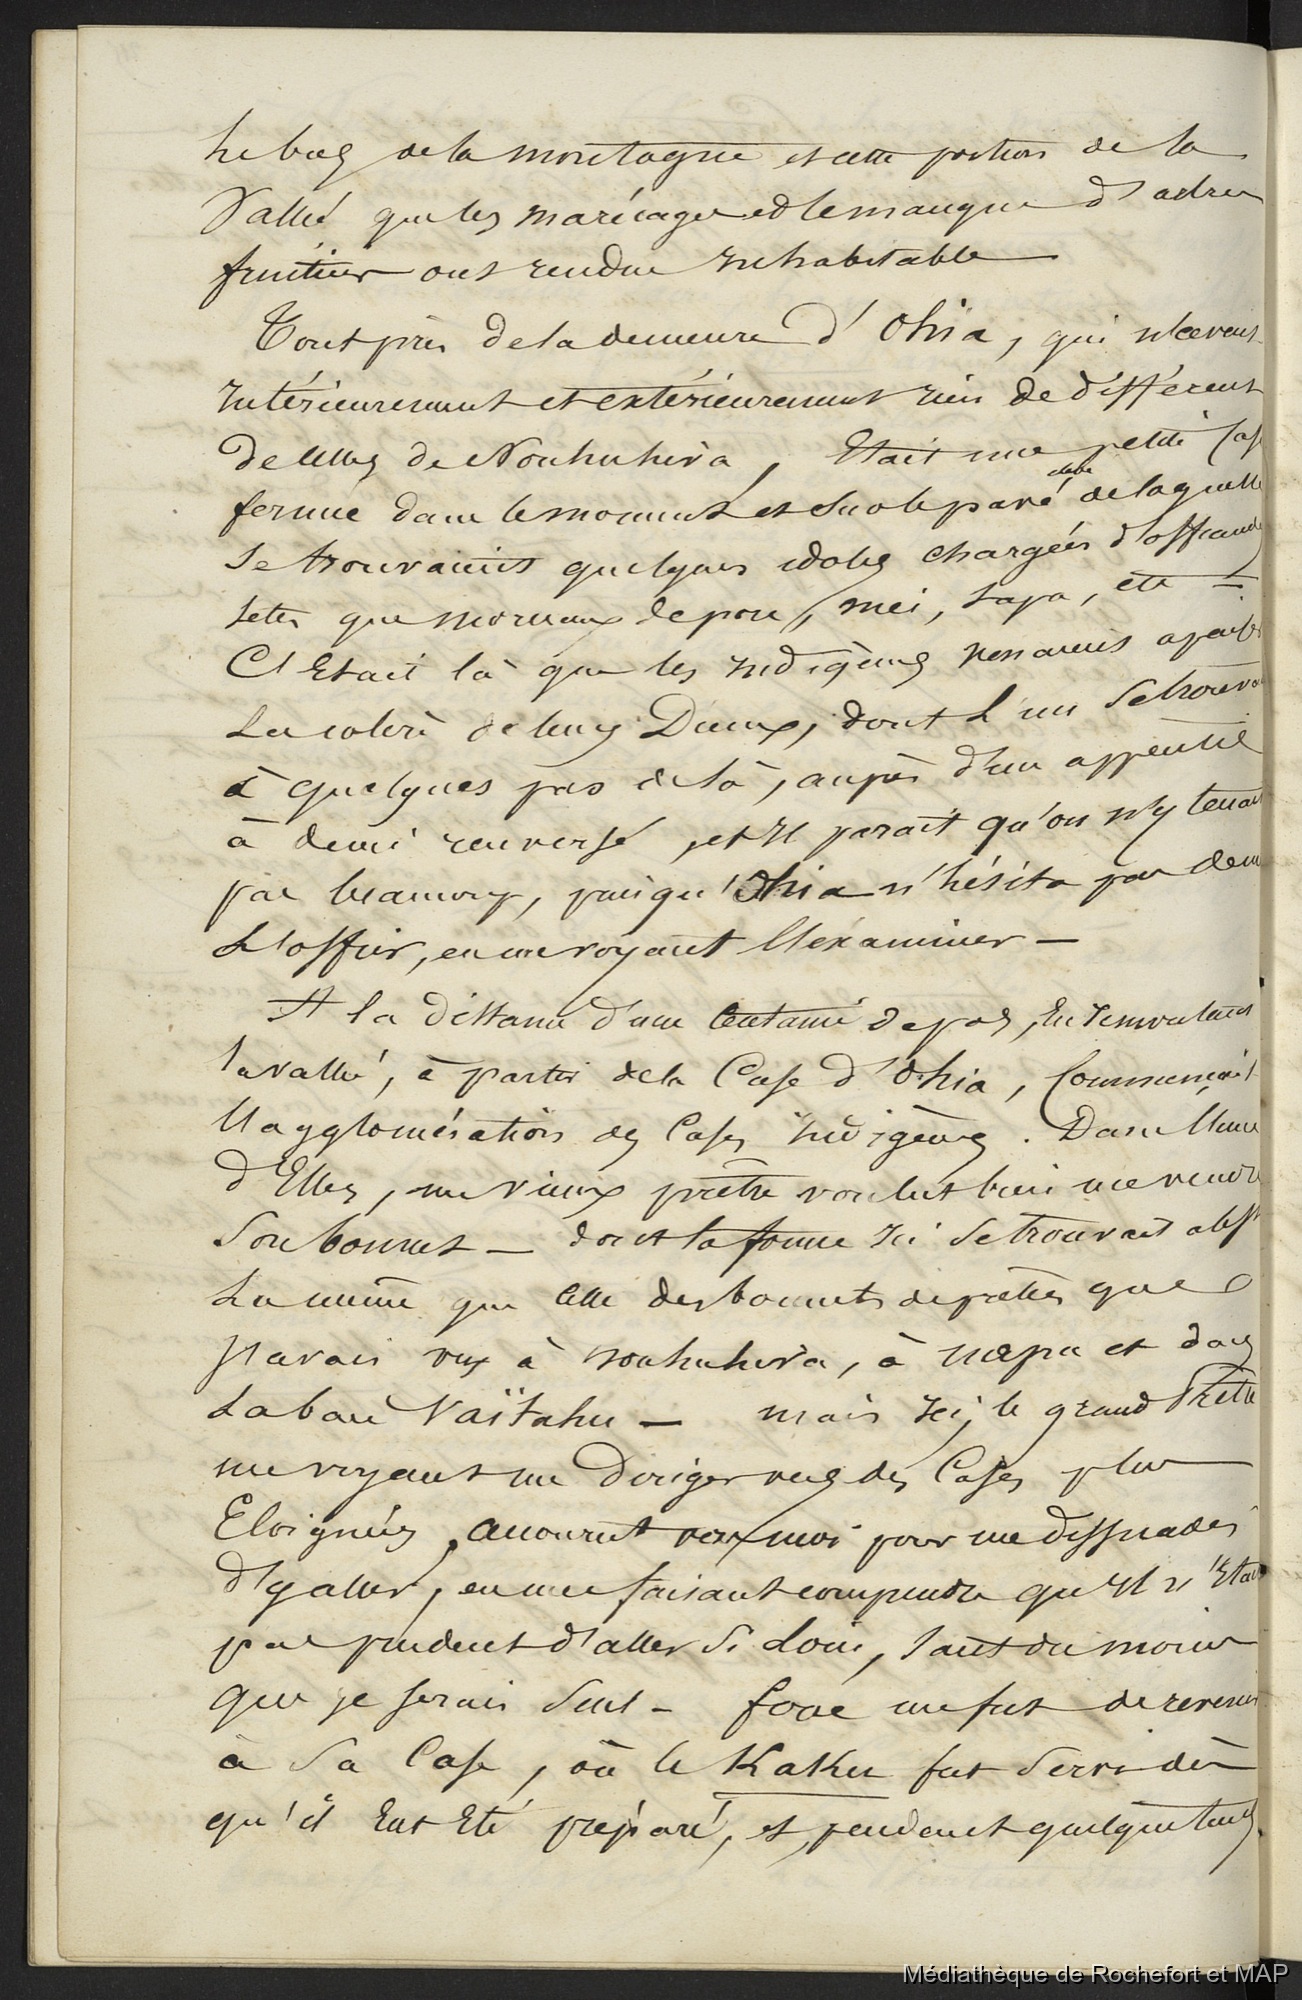 le bas de la montagne et cette portion de la
Vallée que les marécages et le manque d'arbres
fruitiers ont rendue inhabitable
Tout près de la demeure d'Ohia, qui n'avait
intérieurement et extérieurement rien de différent
de celles de Nouhuhiva, Etait une petite Case
fermée dans le moment et sur le pavé de laquelle
se trouvaient quelques idoles chargées d'offrandes
telles que morceaux de porc, mei, tapa, etc –
C'Etait là que les indigènes venaient apaiser
La colère de leurs Dieux, dont L'un se trouvait
à quelques pas de là, auprès d'un appentis
à demi renversé, et il parait qu'on n'y tenait
pas beaucoup, puisqu'Ohia n'hésita pas de me
L'offrir, en me voyant l'éxaminer –
A la distance d'une Centaine de pas, En remontant
la vallée, à partir de la Case d'Ohia, Commençait
l'agglomération des Cases indigènes. Dans l'une
d'Elles, un vieux prêtre voulut bien me vendre
Son bonnet – dont la forme ici se trouvait
La même que celle des bonnets de prêtres que
j'avais vus à nouhuhiva, à et dans
La baie Vaïtahu – mais ici, le grand Prêtre
me voyant me diriger vers des Cases plus
Eloignées, accourut vers moi pour me dissuader
d'y aller, en me faisant comprendre qu'il n'Etait
pas prudent d'aller si Loin, tant du moins
que je serais Seul – force me fut de revenir
à Sa Case, où le KaKu fut Servi dès
qu'il Eut Eté préparé, et pendant quelque temps
Médiathèque de Rochefort et MAP